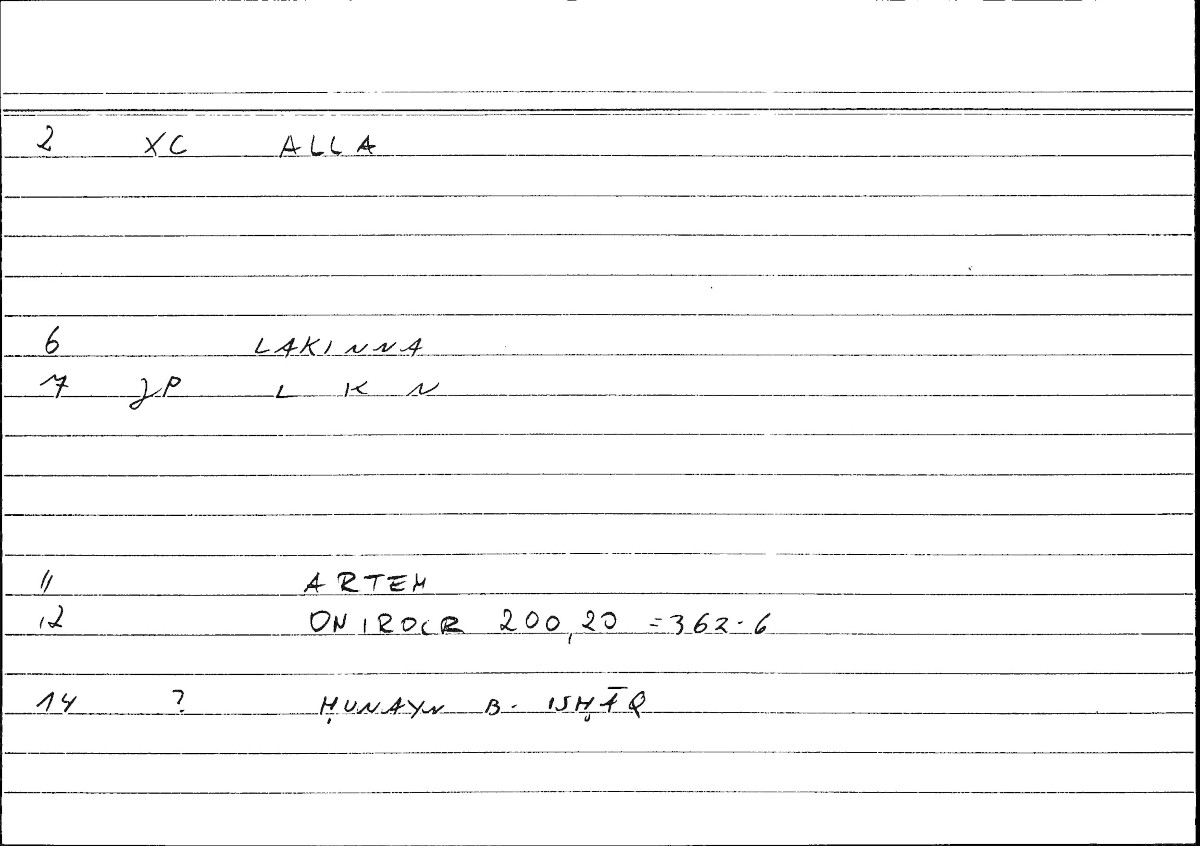 2 XC ALLA
6 LAKINNA
7 JP L K N
11 ARTEM
12 ONIROCR 200,20 =362.6
14 ? ḤUNAYN B. ISḤĀQ